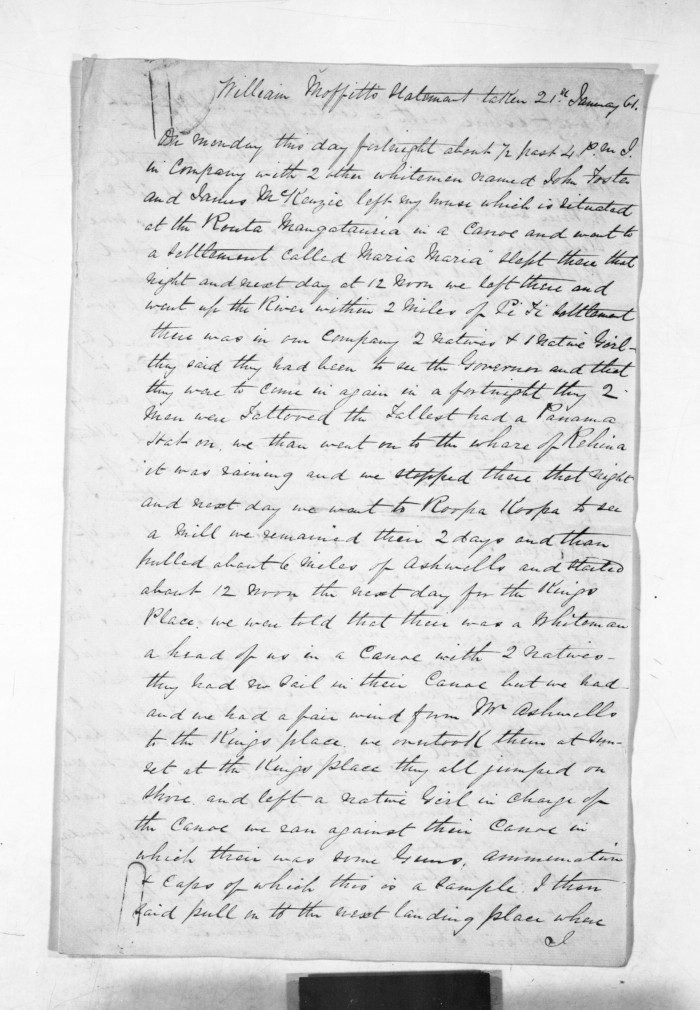 William Moffitts Statement taken 21st January 61.
On Monday this day fortnight about 1/2 past 4 P.M. I.
in Company with 2 other whitemen named John Foster
and James McKenzie left my house which is situated
at the Routa Mangatauria in a Canoe and went to
a Settlement called Maria Maria slept there that
night and next day at 12 Noon we left there and
went up the River within 2 Miles of Pi Ti Settlement
there was in our Company 2 Natives & 1 Native Girl-
they said they had been to see the Governor and that
they were to come in again in a fortnight they 2
Men were Tattoved the Tallest had a Panama
Hat on. we than went on to the whare of Rehina
it was raining and we stopped there that night
and next day we went to Koopa Koopa to see
a Mill we remained their 2 days and than
pulled about 6 Miles of Ashwells and started
about 12 Noon the next day for the Kings
Place. we were told that their was a Whiteman
a head of us in a Canoe with 2 Natives-
they had no Sail in their Canoe but we had-
and we had a fair wind from Mr Ashwells
to the Kings place. we overtook them at Sun-
set at the Kings place they all jumped on
Shore. and left a Native Girl in charge of
the Canoe we ran against their Canoe in
which their was some Guns, ammunation
& Caps of which this is a Sample. I then
said pull in to the next landing place where
I